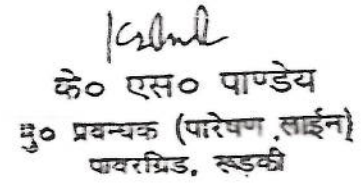 के० एस० पाण्डेय
मु० प्रबन्धक (पारेषण लाईन)
पावरग्रिड, रूड़की